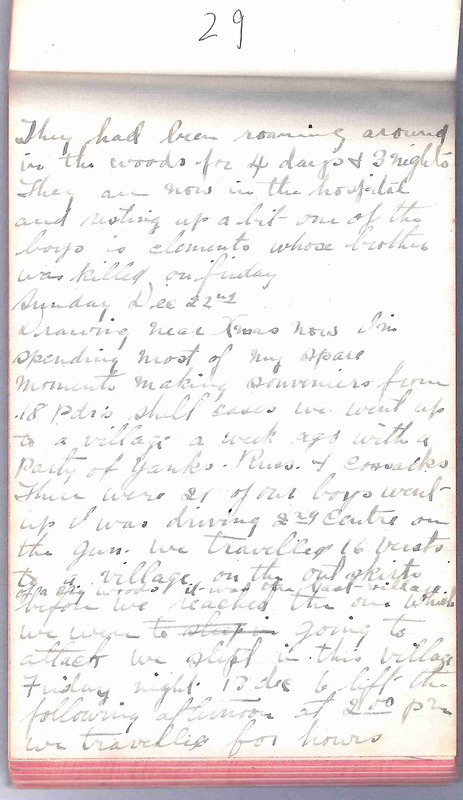 29
They had been roaming around
in the woods for 4 days & 3 nights
They are now in the hospital
and resting up a bit one of the
boys is clements whose brother
was killed on friday
Sunday Dec 22nd
Drawing near Xmas now I'm
spending most of my spare
moments making souveniers from
18 pdrs shell cases we went up
to a village a week ago with a
party of Yanks. Russ. & Cossacks
There were 21 of our boys went
up I was driving 2nd Centre on
the gun. we travelled 16 versts
to a village on the outskirts
of a big woods it was the last village
before we reached the one which
we were to sleep in going to
attack we slept in this village
Friday night 13 dec & left the
following afternoon at 2.00 pm
we travelled for hours